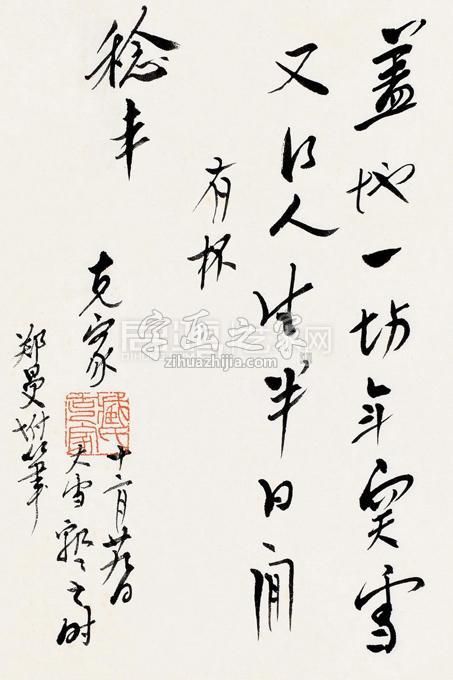 盖地一场年雪
又得人生半日闲
有怀
稔
克家
十二月廿日
大雪飘飘之时
郑曼附笔
字画之家网
zihuazhijia.com